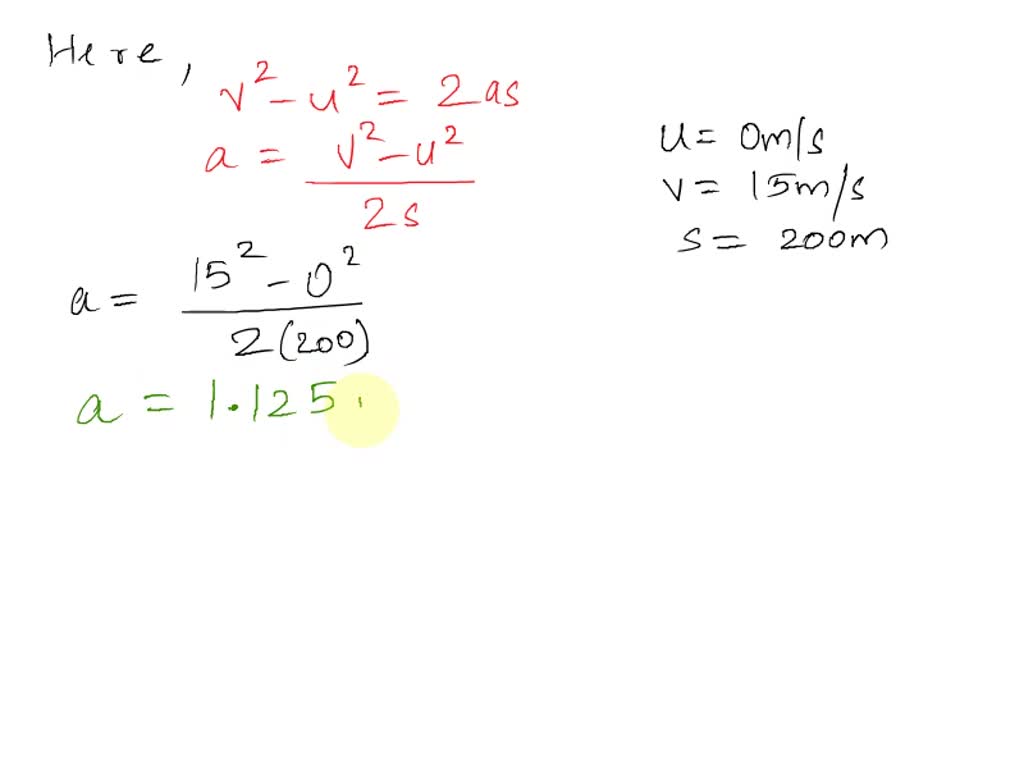 Here,
v² - u² = 2as
a = v² - u² / 2s
u = 0m/s
v = 15m/s
s = 200m
a = 15² - 0² / 2(200)
a = 1.125